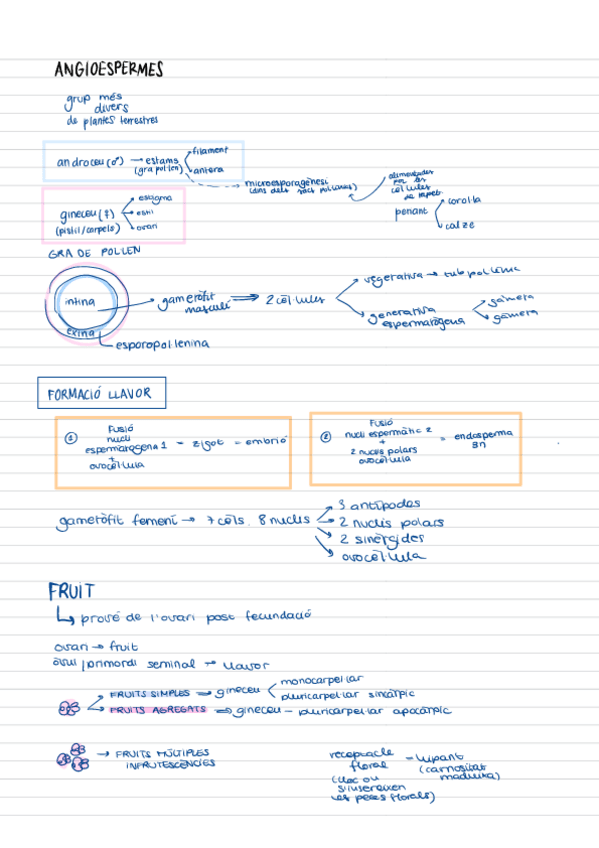 ANGIOESPERMES
grup més
divers
de plantes terrestres
androceu (♂) → estams
(gra pol·len)
filament
antera
microesporogènesi
(dins dels sacs pol·línics)
alimentades
per les
cèl·lules
de tapet
gineceu (♀)
(pistil/carpels)
estigma
estil
ovari
periant
corol·la
calze
GRA DE POL·LEN
intina
exina
esporopol·lenina
gametòfit
masculí
2 cèl·lules
vegetativa → tub pol·línic
generativa
espermatògena
gàmeta
gàmeta
FORMACIÓ LLAVOR
① Fusió
nucli
espermatogena 1
+
ovocèl·lula
= zigot = embrió
② Fusió
nucli espermàtic 2
+
2 nuclis polars
ovocèl·lula
= endosperma
3n
gametòfit femení → 7 cèls. 8 nuclis
3 antípodes
2 nuclis polars
2 sinèrgides
ovocèl·lula
FRUIT
prové de l'ovari post fecundació
ovari → fruit
òvul/primordi seminal → llavor
FRUITS SIMPLES → gineceu
monocarpel·lar
pluricarpel·lar sincàrpic
FRUITS AGREGATS → gineceu - pluricarpel·lar apocàrpic
→ FRUITS MÚLTIPLES
INFRUTESCÈNCIES
receptacle
floral
(lloc on
s'insereixen
les peces florals)
(carnositat
maduixa)